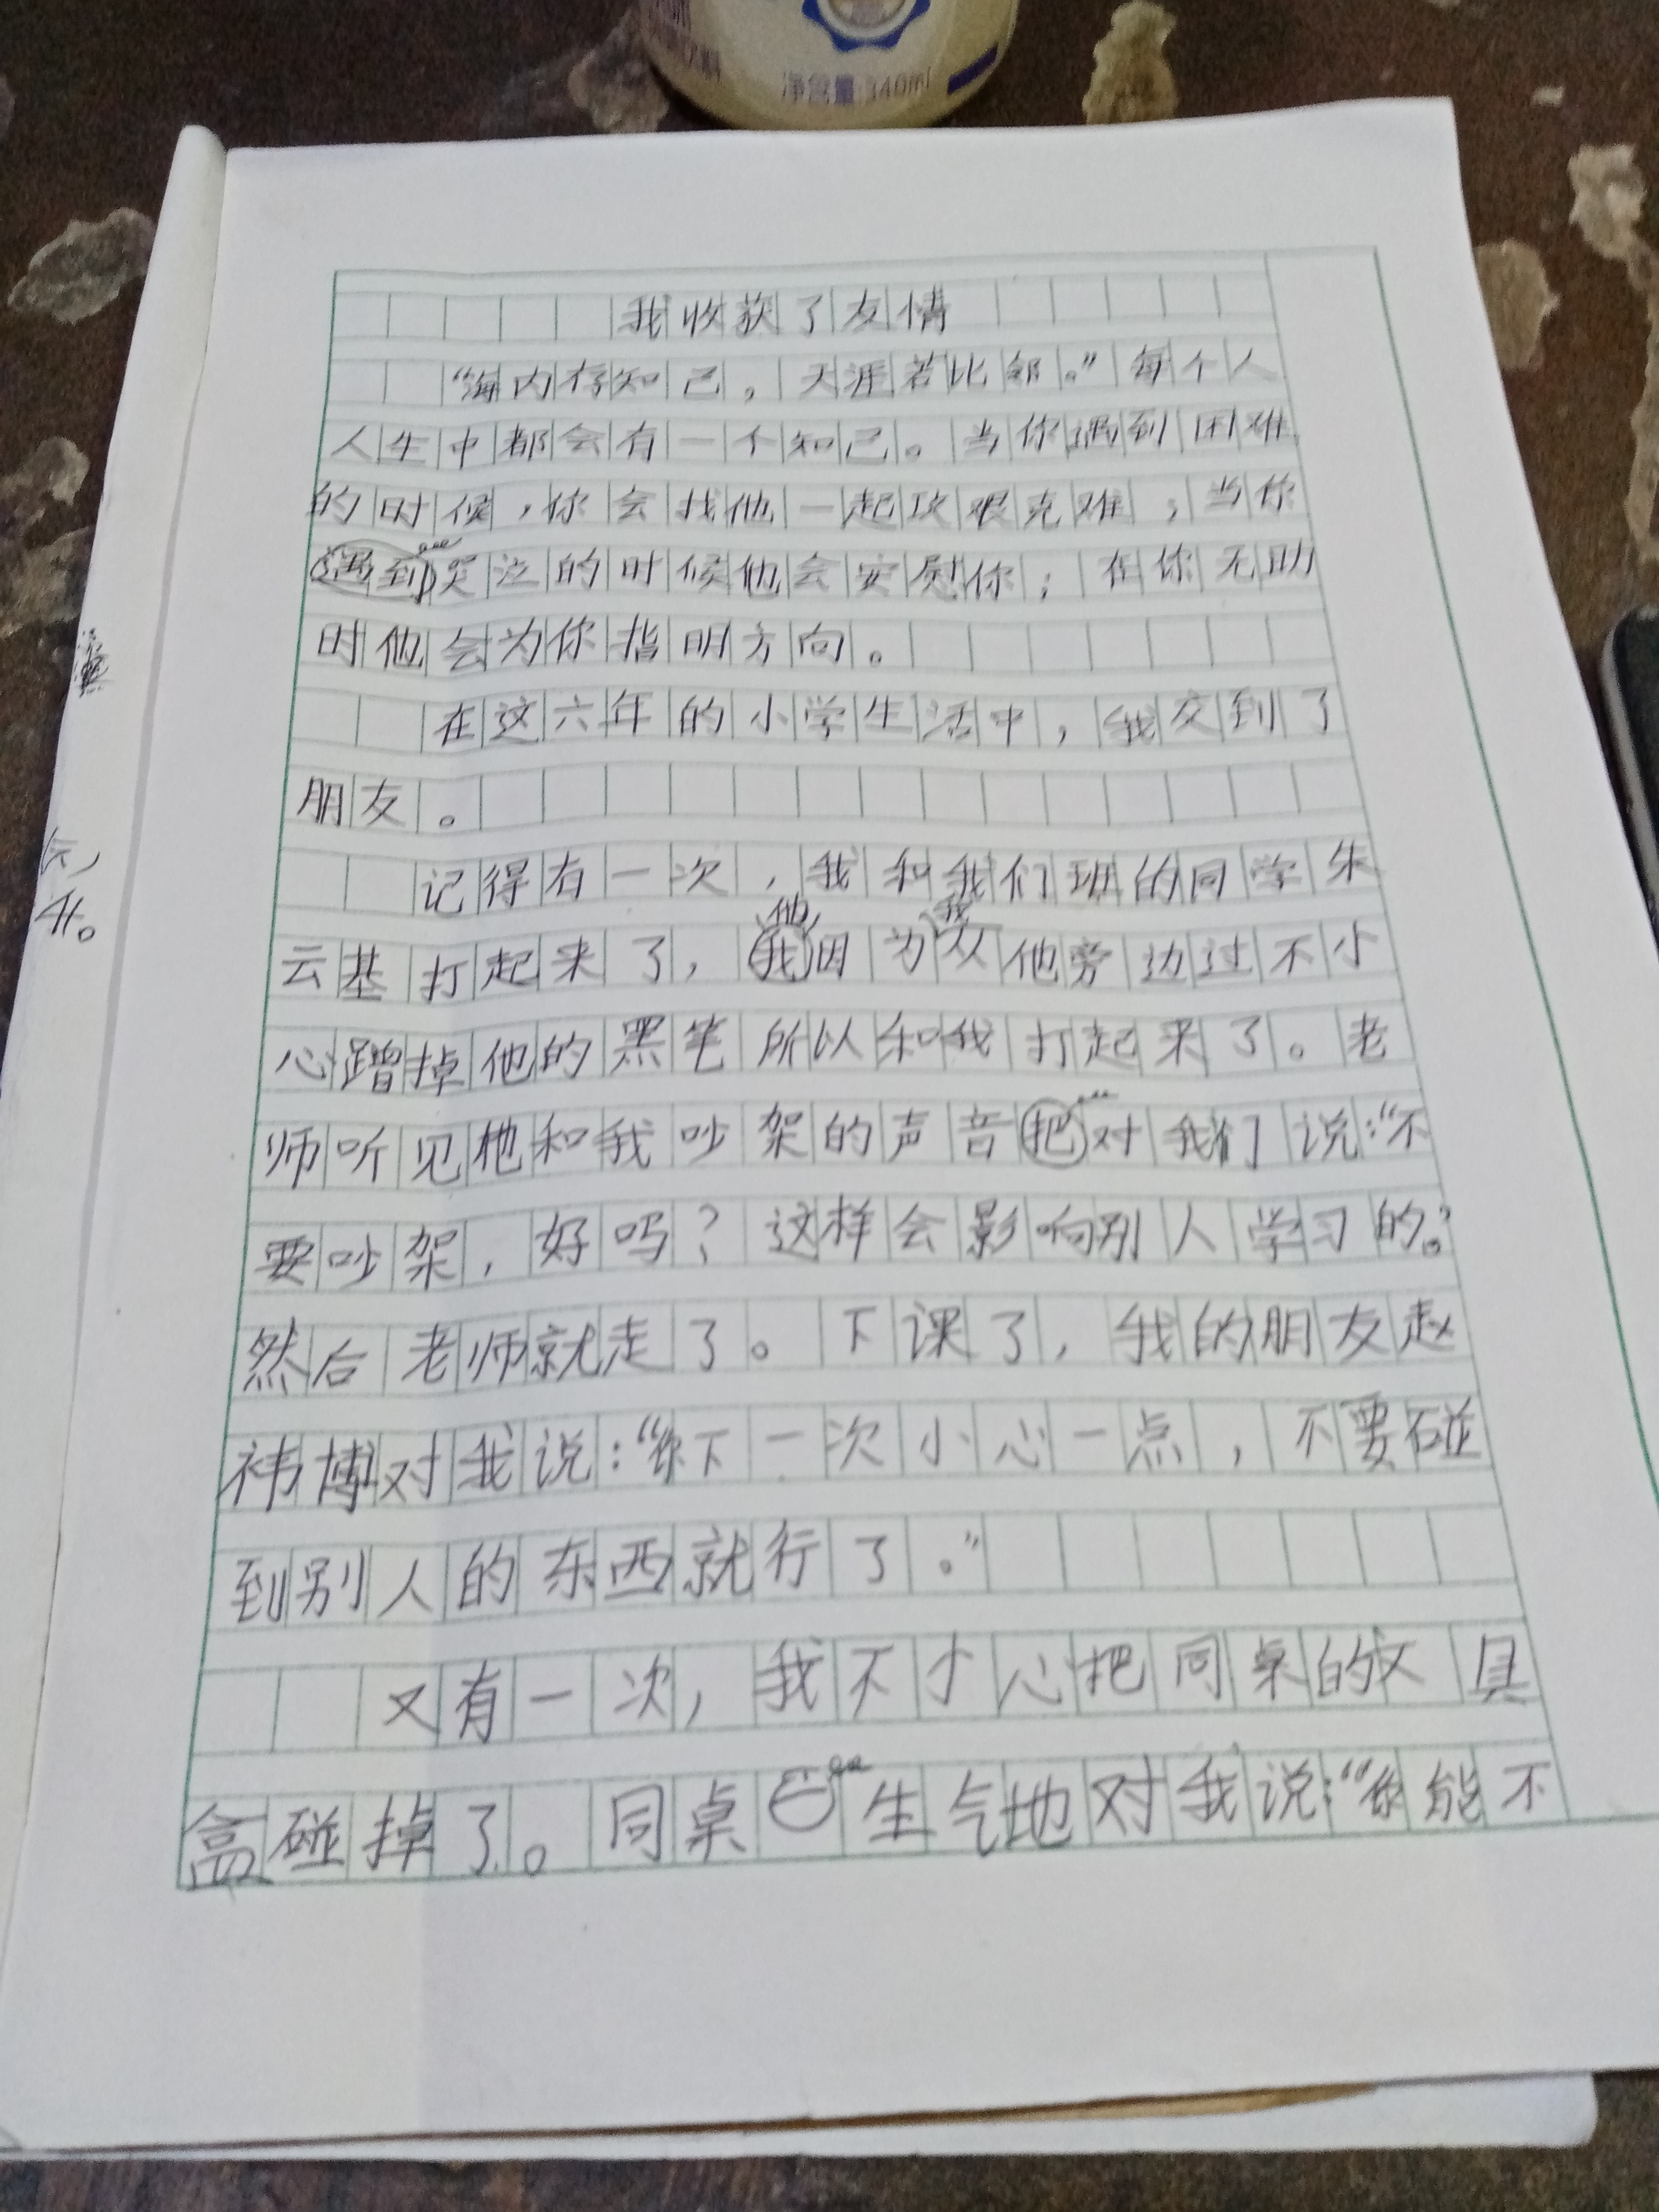 净含量:340ml
我收获了友情
“海内存知己，天涯若比邻。”每个人
人生中都会有一个知己。当你遇到困难
的时候，你会找他一起攻艰克难；当你
遇到哭泣的时候他会安慰你；在你无助
时他会为你指明方向。
在这六年的小学生活中，我交到了
朋友。
记得有一次，我和我们班的同学朱
他 我
云基打起来了，我因为从他旁边过不小
心蹭掉他的黑笔所以和我打起来了。老
师听见他和我吵架的声音把对我们说：“不
要吵架，好吗？这样会影响别人学习的。”
然后老师就走了。下课了，我的朋友赵
祎博对我说：“你下一次小心一点，不要碰
到别人的东西就行了。”
又有一次，我不小心把同桌的文具
盒碰掉了。同桌生气地对我说：“你能不